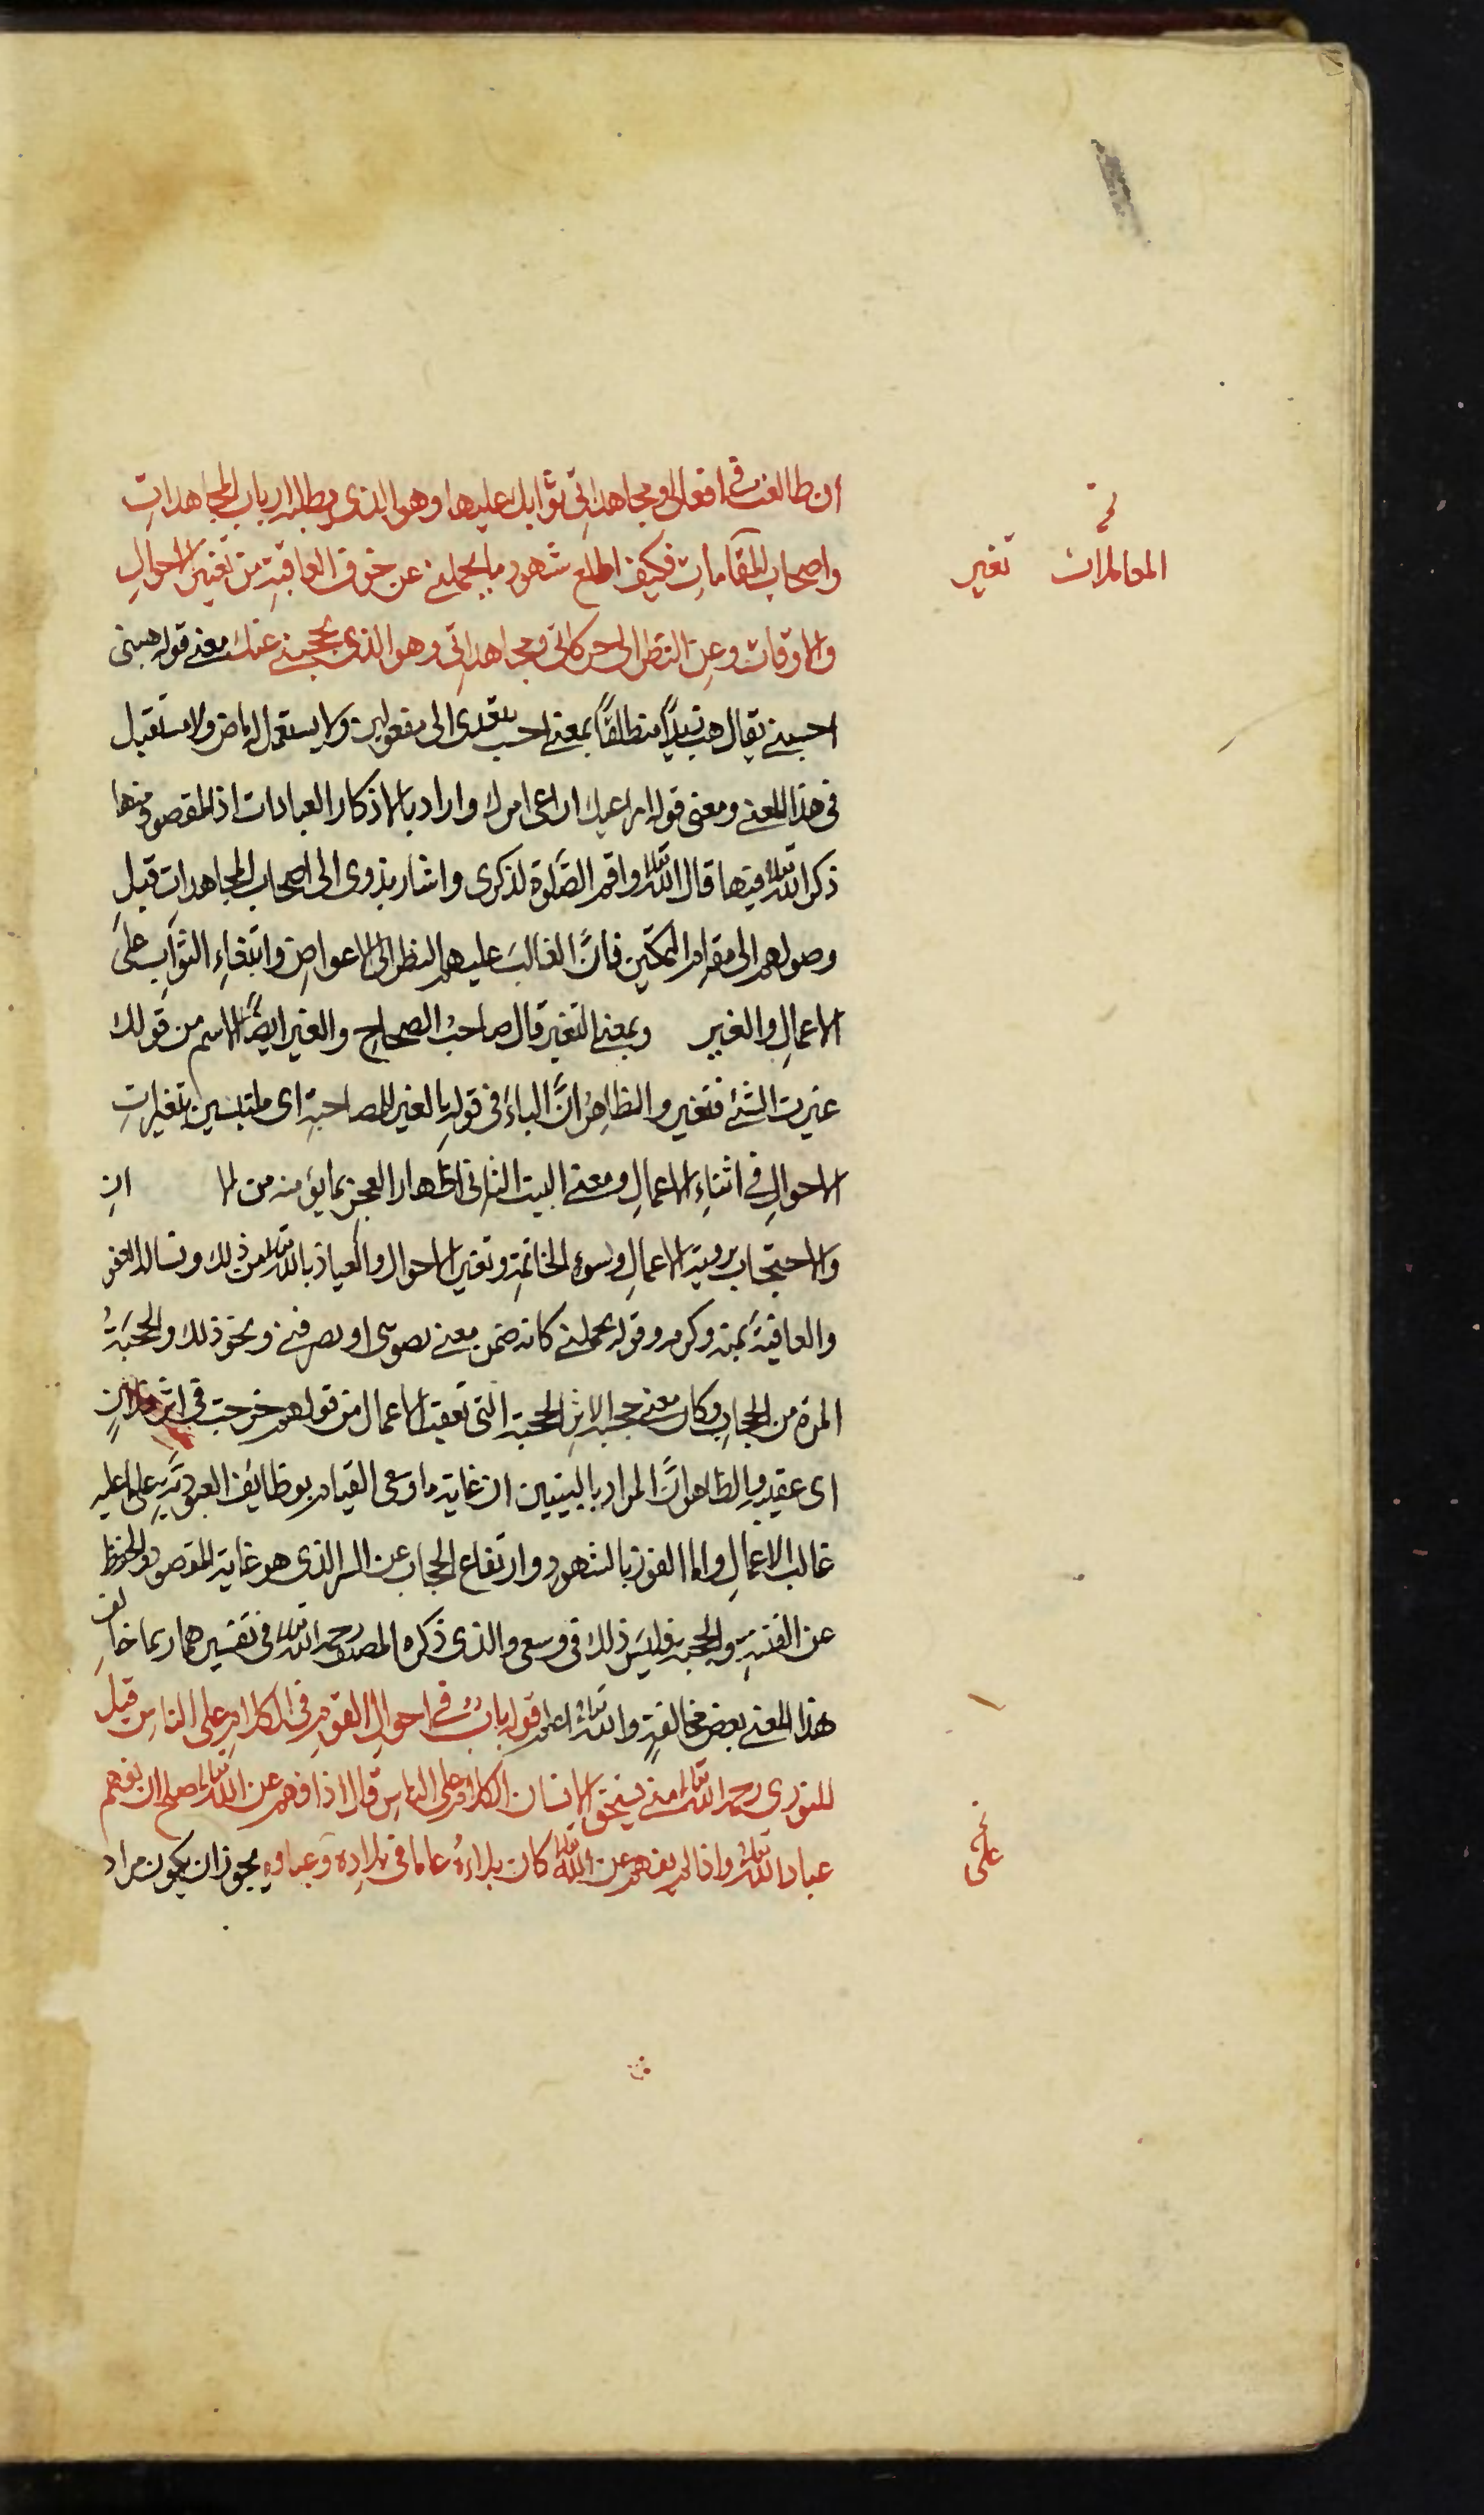 ان طالعت في افعالى ومجاهداتي ثوابك عليها وهو الذى يطلبه ارباب المجاهدات
واصحاب المقامات فكيف اطلع شهود ما يحملنى عن خوف العاقبة من تغير الاحوال
والاوقات وعن النظر الى حركاتى ومجاهداتى وهو الذى يحجبنى عنك معنى قوله هبنى
احسبنى يقال هب زيدا منطلقا بمعنى احسب يتعدى الى مفعولين ولا يستعمل له ماض ولا مستقبل
فى هذا المعنى ومعنى قوله اراعيك اراعى امرك واراد بالاذكار العبادات اذ المقصود منها
ذكر الله تعالى فيها قال الله تعالى واقم الصلوة لذكرى واشار بذوى الى اصحاب المجاهدات قبل
وصولهم الى مقام التمكين فان الغالب عليهم النظر الى الاعواض وابتغاء الثواب على
الاعمال والغير وبمعنى التغير قال صاحب الصحاح والغير ايضا الاسم من قولك
غيرت الشئ فتغير والظاهر ان الباء فى قوله بالغير للمصاحبة اى ملتبسين بتغيرات
الاحوال فى اثناء الاعمال ومعنى البيت الثانى اظهار العجز بما يؤمنه من ان
والاحتجاب برؤية الاعمال وسوء الخاتمة وتغير الاحوال والعياذ بالله تعالى من ذلك ونساله العفو
والعافية بمنه وكرمه وقوله يحملنى كانه ضمن معنى او يصرفنى ونحو ذلك والحجبة
المرة من الحجاب وكان معنى حجبة الاثر الحجبة التى تعقب الاعمال من قولهم خرجت فى اثر فلان
اى عقيبه والظاهر ان المراد بالبيتين ان غاية ما وسعى القيام بوظائف العبودية على ما عليه
غالب الاعمال واما الفوز بالشهود وارتفاع الحجاب عن السر الذى هو غاية المقصود والحفظ
عن الفتنة والحجبة فليس ذلك فى وسعى والذى ذكره المصنف رحمه الله تعالى فى تفسيرهما ربما خالف
هذا المعنى بعض مخالفة والله تعالى اعلم قوله باب فى احوال القوم فى الكلام على الناس قيل
للنورى رحمه الله تعالى متى يستحق الانسان الكلام على الناس قال اذا فهم عن الله تعالى صلح ان يفهم
عباد الله تعالى واذا لم يفهم عن الله تعالى كان بلاءه عاما فى بلاده وعباده يجوز ان يكون مراد
المعاملات تغير
على